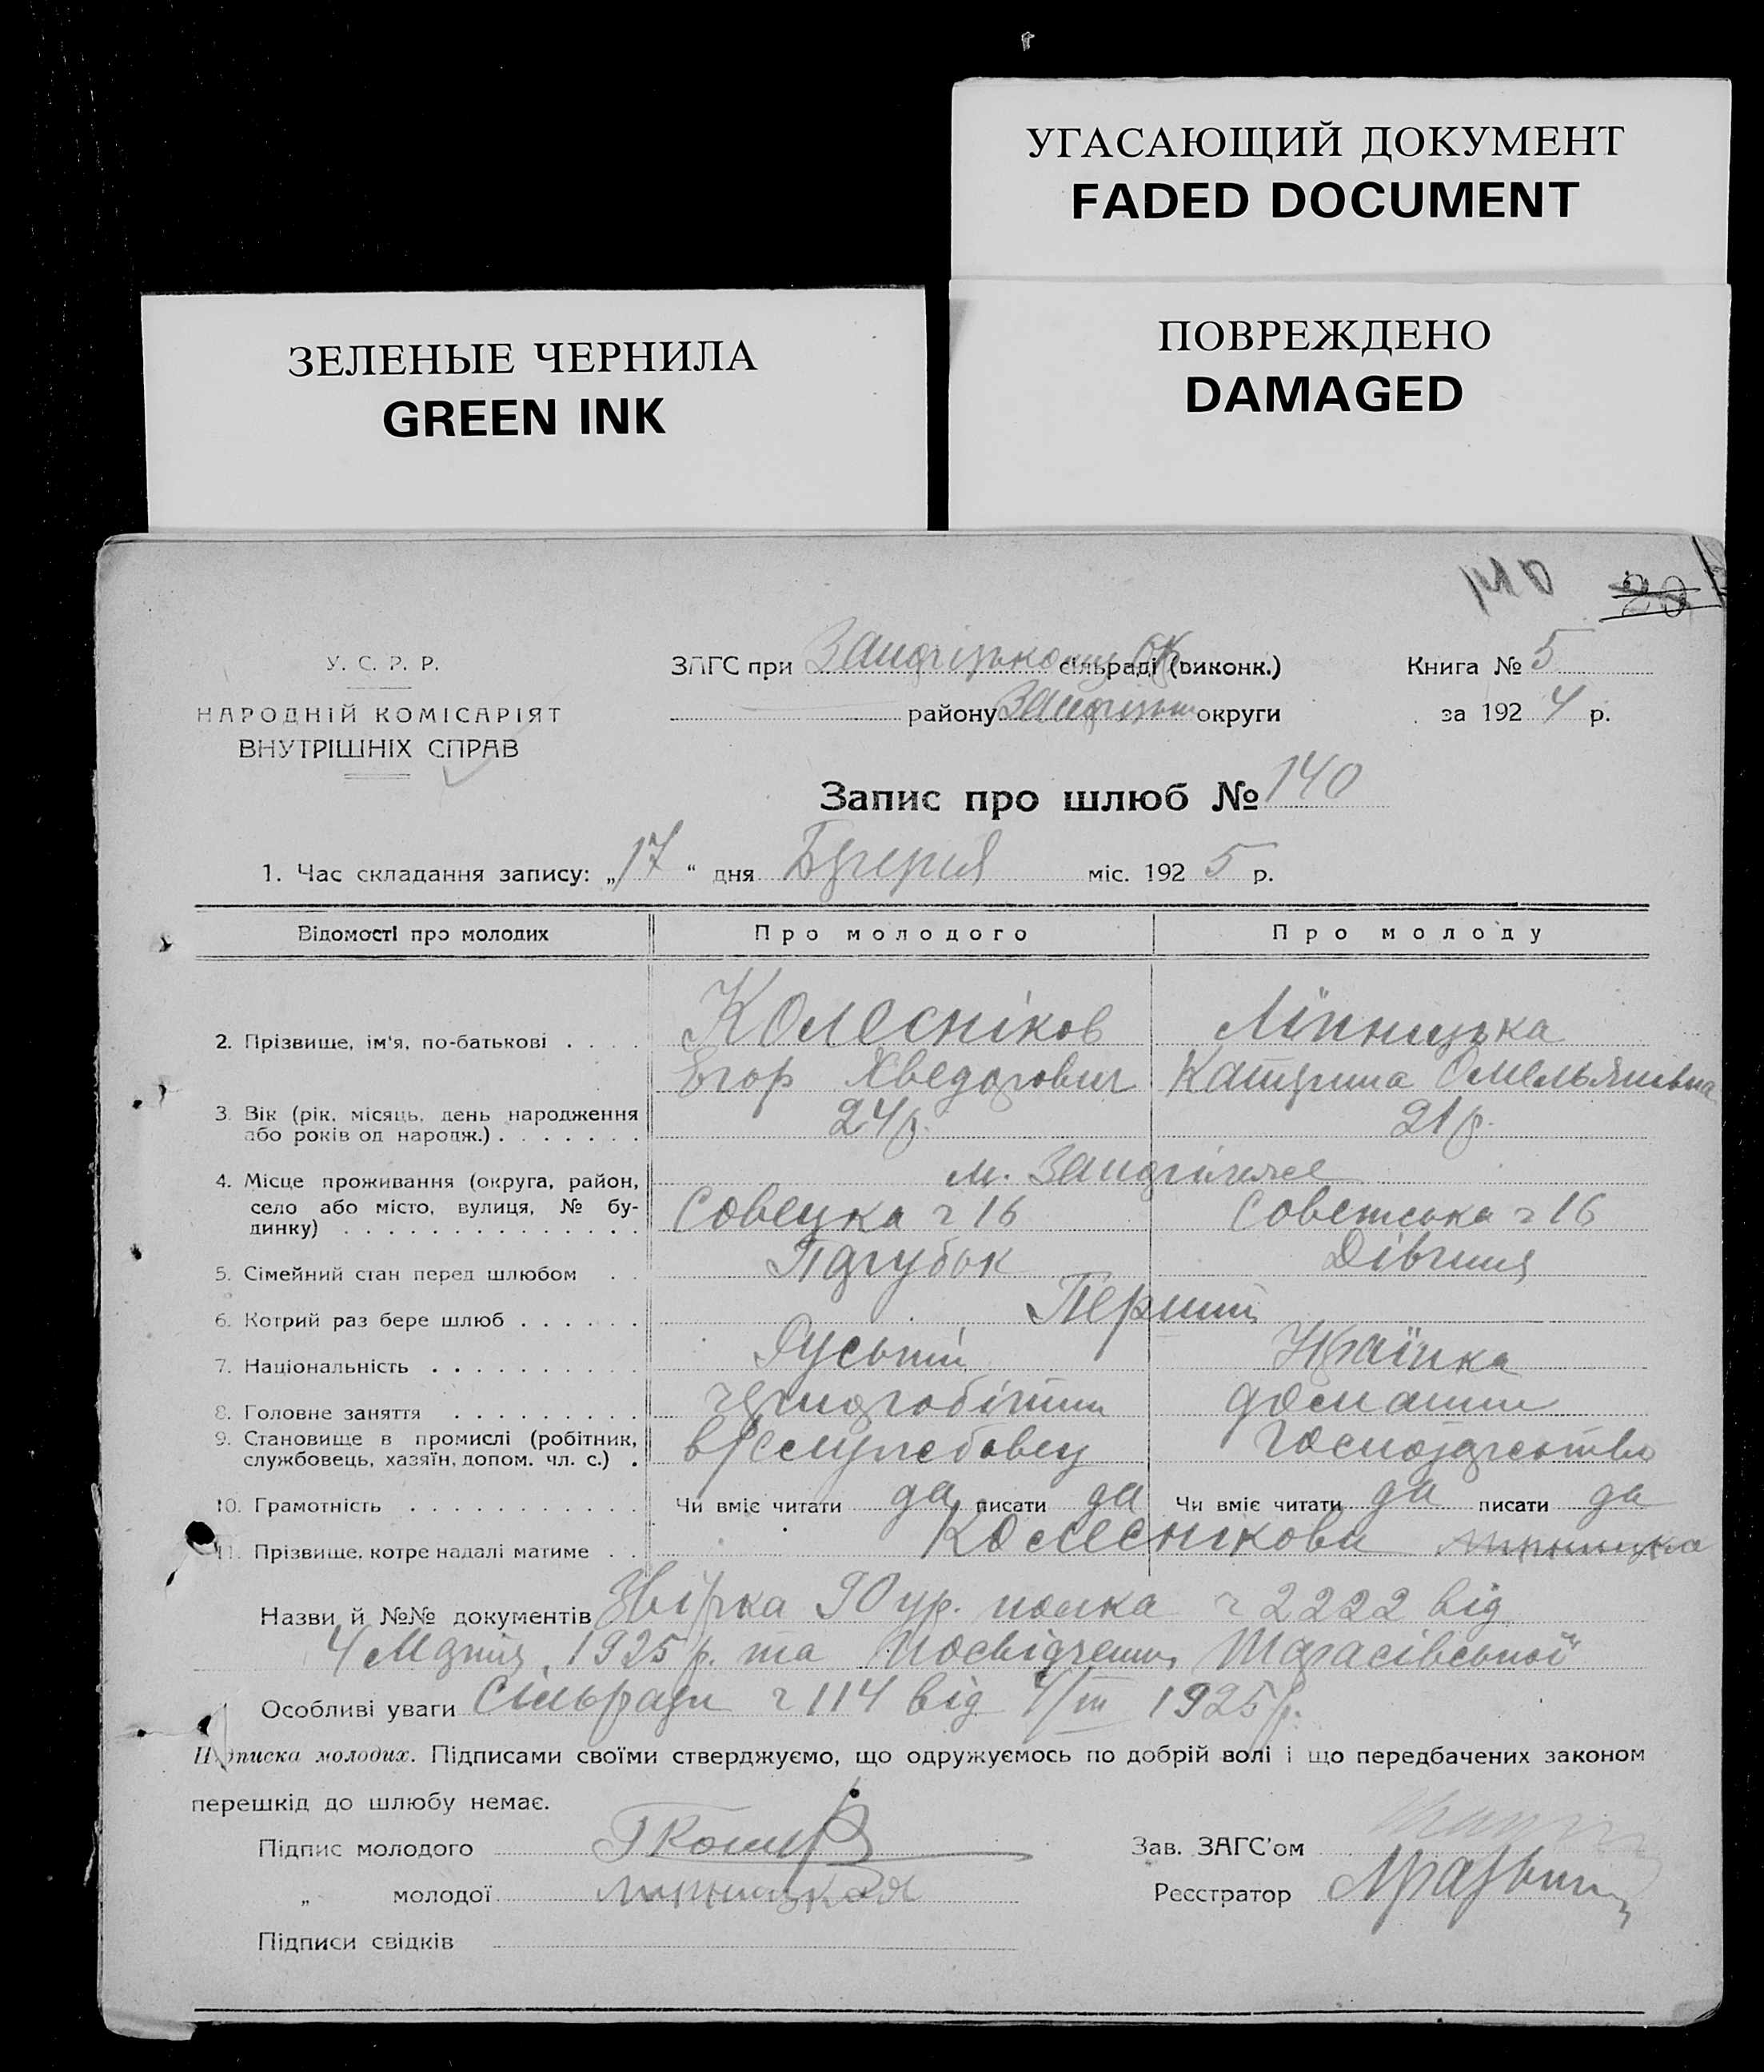 УГАСАЮЩИЙ ДОКУМЕНТ
FADED DOCUMENT
ЗЕЛЕНЫЕ ЧЕРНИЛА
GREEN INK
ПОВРЕЖДЕНО
DAMAGED
140 20
У. С. Р. Р.
НАРОДНІЙ КОМІСАРІЯТ
ВНУТРІШНІХ СПРАВ
ЗАГС при Запорізькому сільраді (виконк.)
Книга № 5
району округи
за 1924 р.
Запис про шлюб № 140
1. Час складання запису: „17“ дня міс. 1925 р.
Відомості про молодих
Про молодого
Про молоду
2. Прізвище, ім'я, по-батькові . . . .
Колесніков
Егор Хведорович
Ліпницька
Катерина Омельянівна
3. Вік (рік, місяць, день народження
або років од народж.) . . . . . . .
24 р.
21 р.
4. Місце проживання (округа, район,
село або місто, вулиця, № бу-
динку) . . . . . . . . . . . . . .
м. Запоріжже
Совецка ч 16
Советська ч 16
5. Сімейний стан перед шлюбом . .
Парубок
Дівчина
6. Котрий раз бере шлюб . . . . . .
Перший
7. Національність . . . . . . . . .
Руський
Українка
8. Головне заняття . . . . . . . . .
чорноробітник
домашнє
9. Становище в промислі (робітник,
службовець, хазяїн, допом. чл. с.) .
в/служебовец
господарство
10. Грамотність . . . . . . . . . . .
Чи вміє читати да писати да
Чи вміє читати да писати да
11. Прізвище, котре надалі матиме . .
Колеснікови
Назви й №№ документів Звірка 90 ур. полка ч 2222 від
4 Марта 1925 р. та посвідчення Тарасівської
Особливі уваги Сільради ч 114 від 4/III 1925 р.
Підписка молодих. Підписами своїми стверджуємо, що одружуємось по добрій волі і що передбачених законом
перешкід до шлюбу немає.
Підпис молодого
Зав. ЗАГС'ом
„ молодої Липницкая
Реєстратор
Підписи свідків